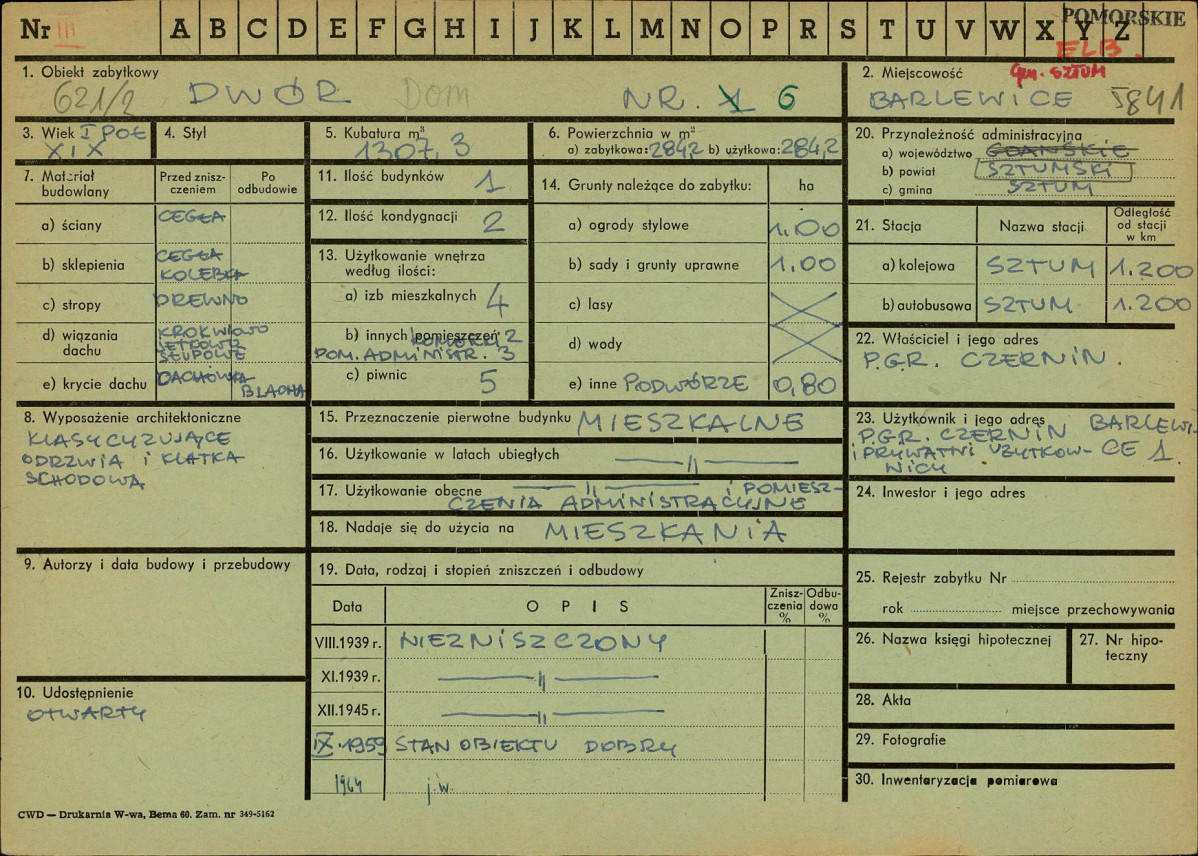 Nr III A B C D E F G H I J K L M N O P R S T U V W X Y Z
POMORSKIE
ELB.
gm. SZTUM
1. Obiekt zabytkowy
621/2 DWÓR Dom NR. 6
2. Miejscowość
BARLEWICE 5841
3. Wiek I POŁ
XIX
4. Styl
5. Kubatura m³
1307,3
6. Powierzchnia w m²
a) zabytkowa: 284,2 b) użytkowa: 284,2
7. Materiał budowlany
Przed zniszczeniem
Po odbudowie
a) ściany CEGŁA
b) sklepienia CEGŁA
KOLEBKA
c) stropy DREWNO
d) wiązania dachu KROKWIOWO
JĘTKOWE
SŁUPOWE
e) krycie dachu DACHÓWKA
BLACHA
8. Wyposażenie architektoniczne
KLASYCYZUJĄCE
ODRZWIA I KLATKA
SCHODOWA
9. Autorzy i data budowy i przebudowy
10. Udostępnienie
OTWARTY
11. Ilość budynków 1
12. Ilość kondygnacji 2
13. Użytkowanie wnętrza
według ilości:
a) izb mieszkalnych 4
b) innych pomieszczeń 2
POM. ADMINISTR. 3
c) piwnic 5
14. Grunty należące do zabytku: ha
a) ogrody stylowe 1.00
b) sady i grunty uprawne 1.00
c) lasy
d) wody
e) inne PODWÓRZE 0,80
15. Przeznaczenie pierwotne budynku MIESZKALNE
16. Użytkowanie w latach ubiegłych —〃—
17. Użytkowanie obecne —〃— I POMIESZ-
CZENIA ADMINISTRACYJNE
18. Nadaje się do użycia na MIESZKANIA
19. Data, rodzaj i stopień zniszczeń i odbudowy
Data
OPIS
Zniszczenia %
Odbudowa %
VIII.1939 r. NIEZNISZCZONY
XI.1939 r. —〃—
XII.1945 r. —〃—
IX.1959 STAN OBIEKTU DOBRY
1964 j.w.
20. Przynależność administracyjna
a) województwo GDAŃSKIE
b) powiat SZTUMSKI
c) gmina SZTUM
21. Stacja
Nazwa stacji
Odległość
od stacji
w km
a) kolejowa SZTUM 1.200
b) autobusowa SZTUM 1.200
22. Właściciel i jego adres
P.G.R. CZERNIN.
23. Użytkownik i jego adres BARLEWI-
P.G.R. CZERNIN CE 1
I PRYWATNI UŻYTKOW-
NICY
24. Inwestor i jego adres
25. Rejestr zabytku Nr
rok miejsce przechowywania
26. Nazwa księgi hipotecznej
27. Nr hipo-
teczny
28. Akta
29. Fotografie
30. Inwentaryzacja pomiarowa
CWD — Drukarnia W-wa, Bema 60. Zam. nr 349-5162